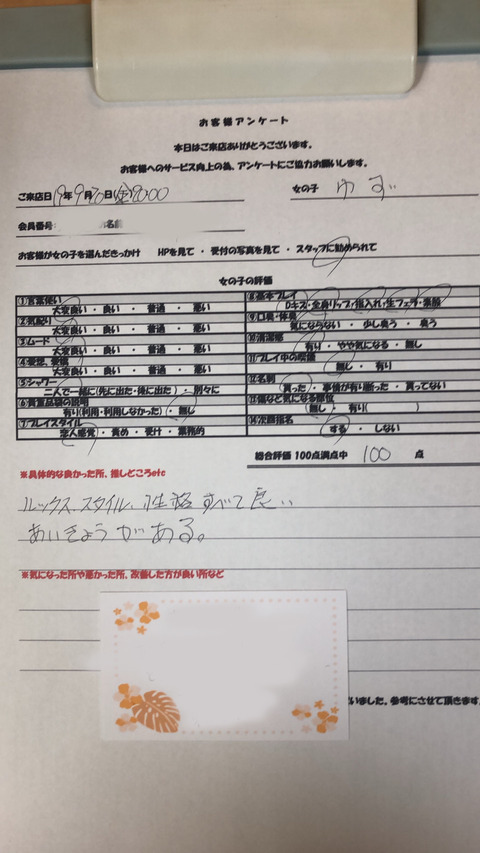 お客様アンケート
本日はご来店ありがとうございます。
お客様へのサービス向上の為、アンケートにご協力お願いします。
ご来店日 19年 9月20日(金)20:00 女の子 ゆず
会員番号: 名前
お客様が女の子を選んだきっかけ HPを見て ・ 受付の写真を見て ・ スタッフに勧められて
女の子の評価
①言葉使い
大変良い ・ 良い ・ 普通 ・ 悪い
②気配り
大変良い ・ 良い ・ 普通 ・ 悪い
③ムード
大変良い ・ 良い ・ 普通 ・ 悪い
④愛想、表情
大変良い ・ 良い ・ 普通 ・ 悪い
⑤シャワー
二人で一緒に(先に出た・後に出た) ・ 別々に
⑥貴重品袋の説明
有り(利用・利用しなかった) ・ 無し
⑦プレイスタイル
恋人感覚 ・ 責め ・ 受け ・ 業務的
⑧基本プレイ
Dキス・全身リップ・指入れ・生フェラ・素股
⑨口臭・体臭
気にならない ・ 少し臭う ・ 臭う
⑩清潔感
有り ・ やや気になる ・ 無し
⑪プレイ中の喫煙
無し ・ 有り
⑫名刺
貰った ・ 事情が有り断った ・ 貰ってない
⑬傷など気になる部位
無し ・ 有り( )
⑭次回指名
する ・ しない
総合評価 100点満点中 100 点
※具体的な良かった所、推しどころetc
ルックス、スタイル、性格すべて良い
あいきょうがある。
※気になった所や悪かった所、改善した方が良い所など
いました。参考にさせて頂きます。